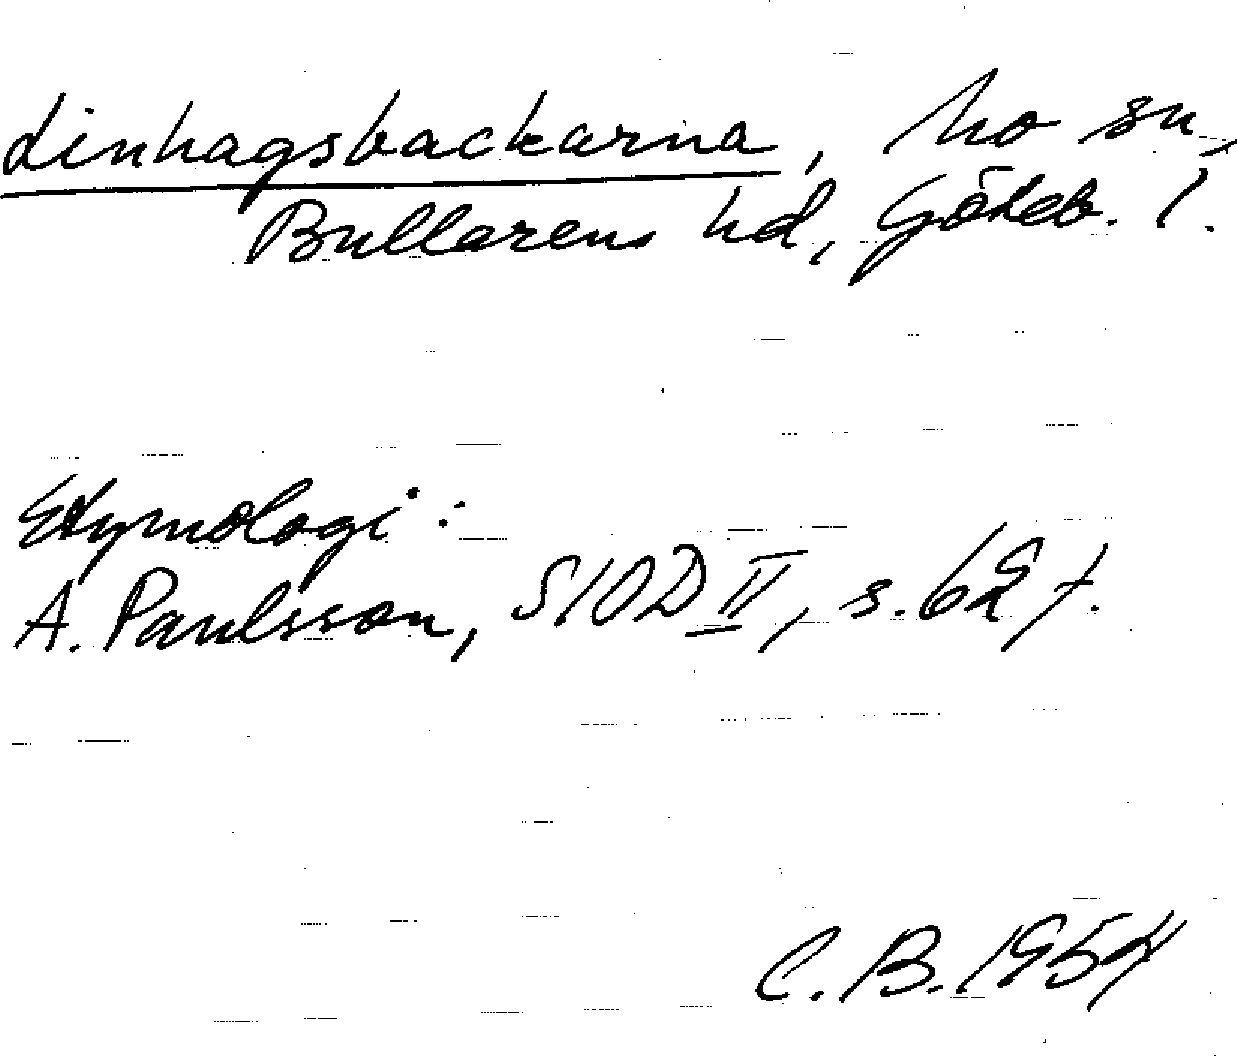 Linhagsbackarna, Mo sn,
Bullarens hd, Göteb. l.
Etymologi:
A. Paulsson, SIOD II, s. 627.
C. B. 1954